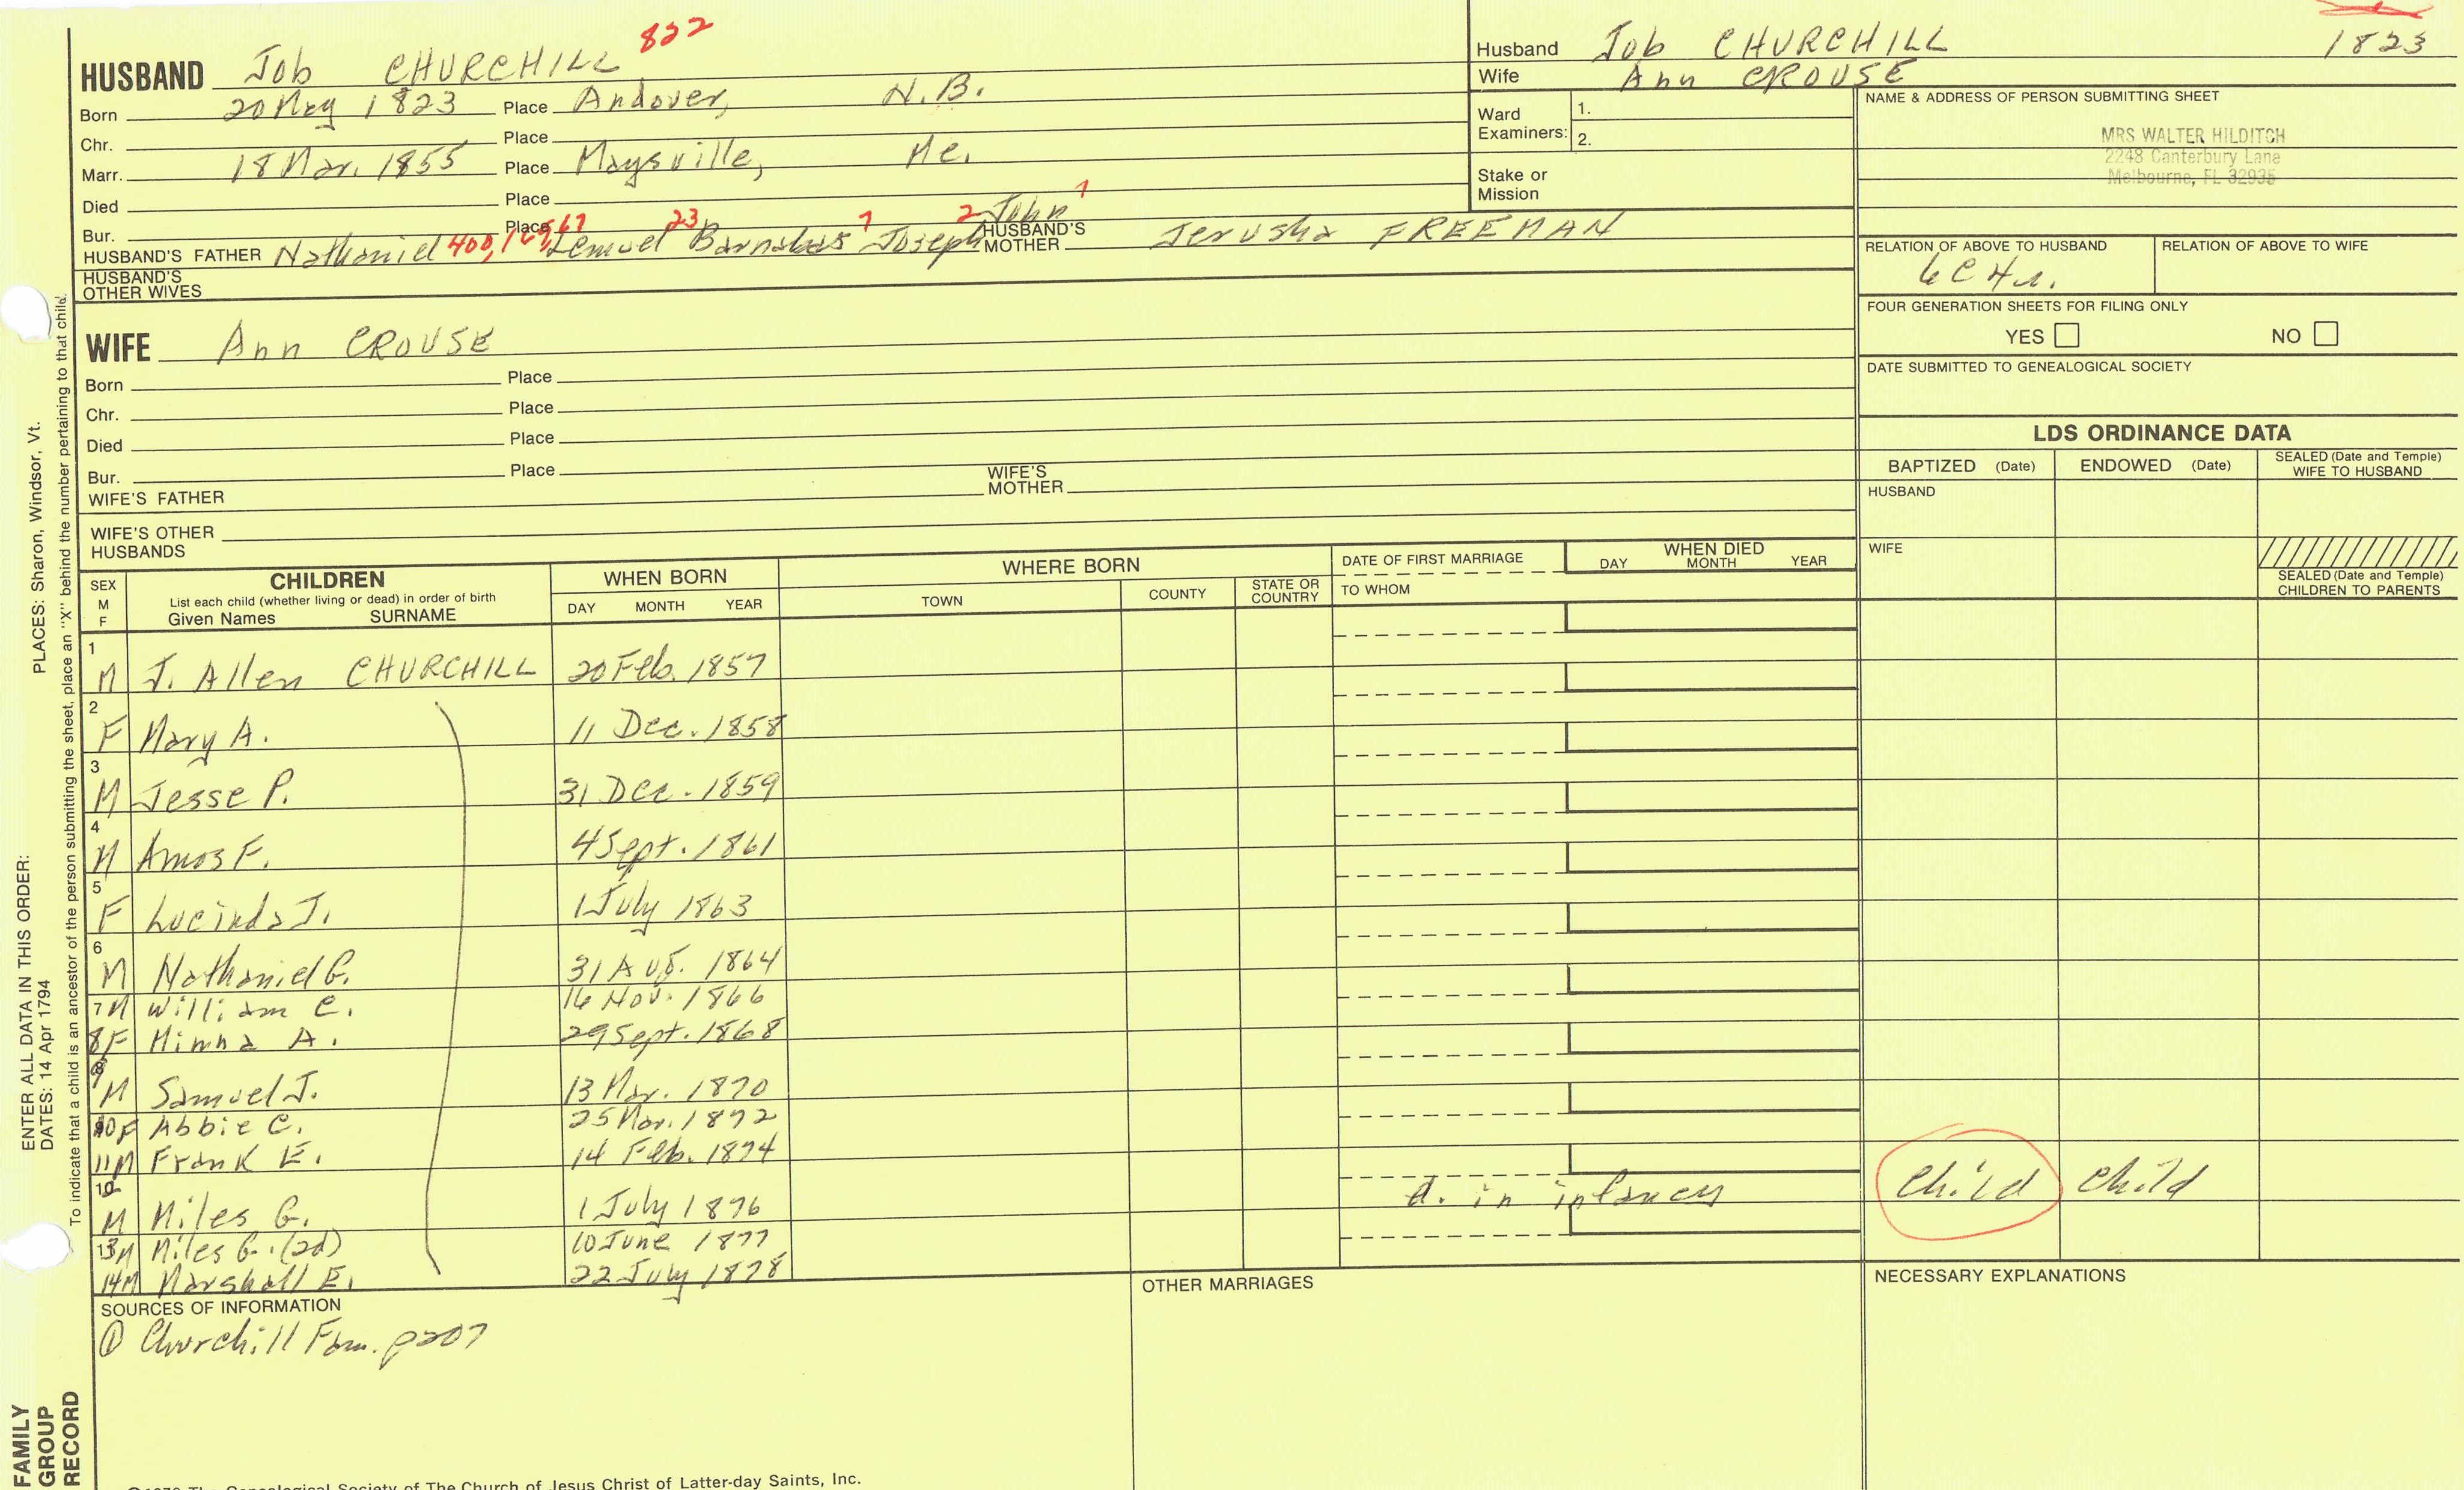 HUSBAND Job CHURCHILL 822
Born 20 May 1823 Place Andover, N.B.
Chr. Place
Marr. 18 Mar. 1855 Place Maysville, Me.
Died Place
Bur. Place
HUSBAND'S FATHER Nathaniel 400, Lemuel 23 Barnabas 7 Joseph 2 John 1 HUSBAND'S MOTHER Jerusha FREEMAN
HUSBAND'S OTHER WIVES
Husband Job CHURCHILL 1823
Wife Ann CROUSE
Ward Examiners: 1.
2.
Stake or Mission
NAME & ADDRESS OF PERSON SUBMITTING SHEET
MRS WALTER HILDITCH
2248 Canterbury Lane
Melbourne, FL 32935
RELATION OF ABOVE TO HUSBAND RELATION OF ABOVE TO WIFE
FOUR GENERATION SHEETS FOR FILING ONLY
YES NO
DATE SUBMITTED TO GENEALOGICAL SOCIETY
WIFE Ann CROUSE
Born Place
Chr. Place
Died Place
Bur. Place
WIFE'S FATHER WIFE'S MOTHER
WIFE'S OTHER HUSBANDS
LDS ORDINANCE DATA
BAPTIZED (Date) ENDOWED (Date) SEALED (Date and Temple) WIFE TO HUSBAND
HUSBAND
WIFE
SEALED (Date and Temple) CHILDREN TO PARENTS
SEX M F
CHILDREN
List each child (whether living or dead) in order of birth
Given Names SURNAME
WHEN BORN
DAY MONTH YEAR
WHERE BORN
TOWN COUNTY STATE OR COUNTRY
DATE OF FIRST MARRIAGE
TO WHOM
WHEN DIED
DAY MONTH YEAR
1 M J. Allen CHURCHILL 20 Feb. 1857
2 F Mary A. 11 Dec. 1858
3 M Jesse P. 31 Dec. 1859
4 M Amos F. 4 Sept. 1861
5 F Lucinda J. 1 July 1863
6 M Nathaniel G. 31 Aug. 1864
7 M William C. 16 Nov. 1866
8 F Minna A. 29 Sept. 1868
9 M Samuel J. 13 Mar. 1870
10 F Abbie C. 25 Mar. 1872
11 M Frank E. 14 Feb. 1874
12 M Miles G. 1 July 1876 d. in infancy Child Child
13 M Miles G. (2d) 10 June 1877
14 M Marshall E. 22 July 1878
SOURCES OF INFORMATION
① Churchill Fam. p207
OTHER MARRIAGES
NECESSARY EXPLANATIONS
©1972 The Genealogical Society of The Church of Jesus Christ of Latter-day Saints, Inc.
FAMILY GROUP RECORD
ENTER ALL DATA IN THIS ORDER:
DATES: 14 Apr 1794
PLACES: Sharon, Windsor, Vt.
To indicate that a child is an ancestor of the person submitting the sheet, place an "X" behind the number pertaining to that child.